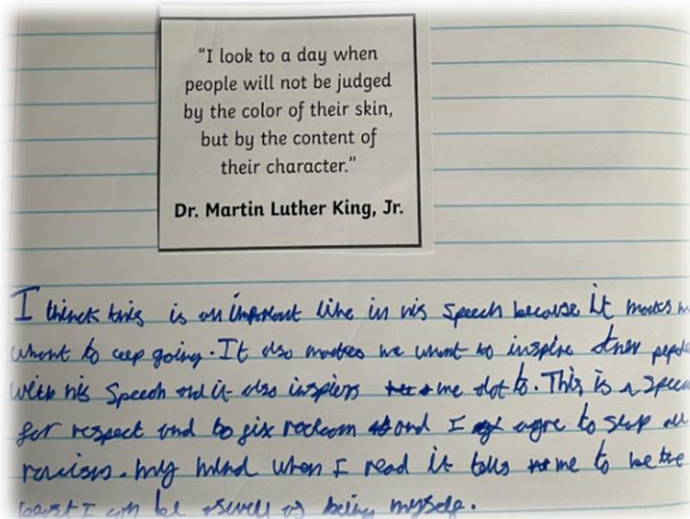 “I look to a day when
people will not be judged
by the color of their skin,
but by the content of
their character.”
Dr. Martin Luther King, Jr.
I thinck this is an important line in his speech because it makes
whant to ceep going. It also makes me whant to inspire other
with his speech and it also inspiers me alot to. This is a
for respect and to fix and I agre to stop
racism. my mind when I read it tells me to be the
I can be aswell as being myself.